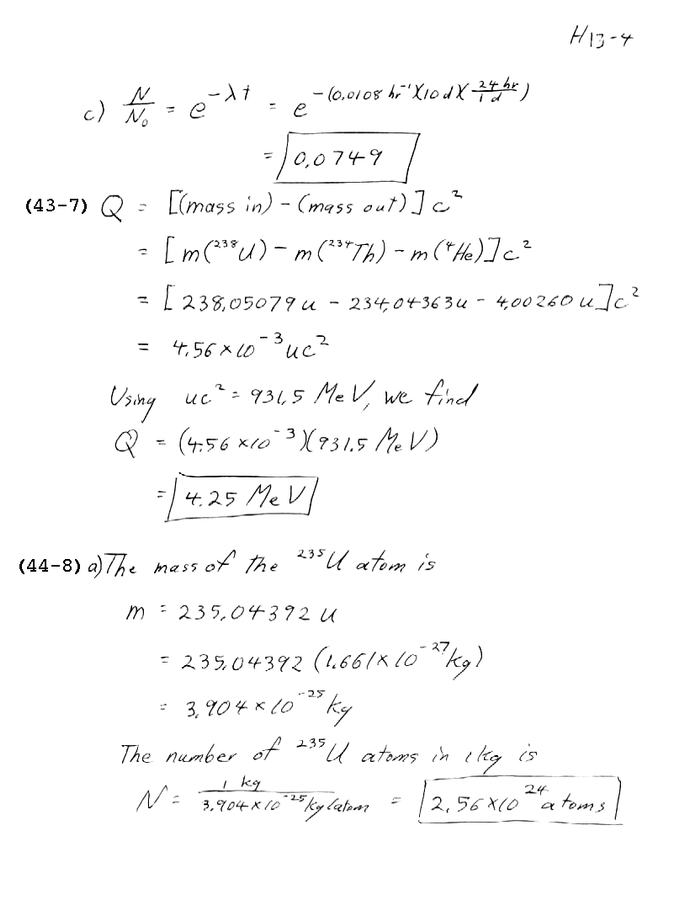 H13-4
c) N/N₀ = e^(-λt) = e^(-(0.0108 hr⁻¹)(10 d)(24 hr/1 d))
= 0.0749
(43-7) Q = [(mass in) - (mass out)] c²
= [m(²³⁸U) - m(²³⁴Th) - m(⁴He)] c²
= [238.05079 u - 234.04363 u - 4.00260 u] c²
= 4.56 × 10⁻³ uc²
Using uc² = 931.5 MeV, we find
Q = (4.56 × 10⁻³)(931.5 MeV)
= 4.25 MeV
(44-8) a) The mass of the ²³⁵U atom is
m = 235.04392 u
= 235.04392 (1.661 × 10⁻²⁷ kg)
= 3.904 × 10⁻²⁵ kg
The number of ²³⁵U atoms in 1 kg is
N = 1 kg / 3.904 × 10⁻²⁵ kg/atom = 2.56 × 10²⁴ atoms